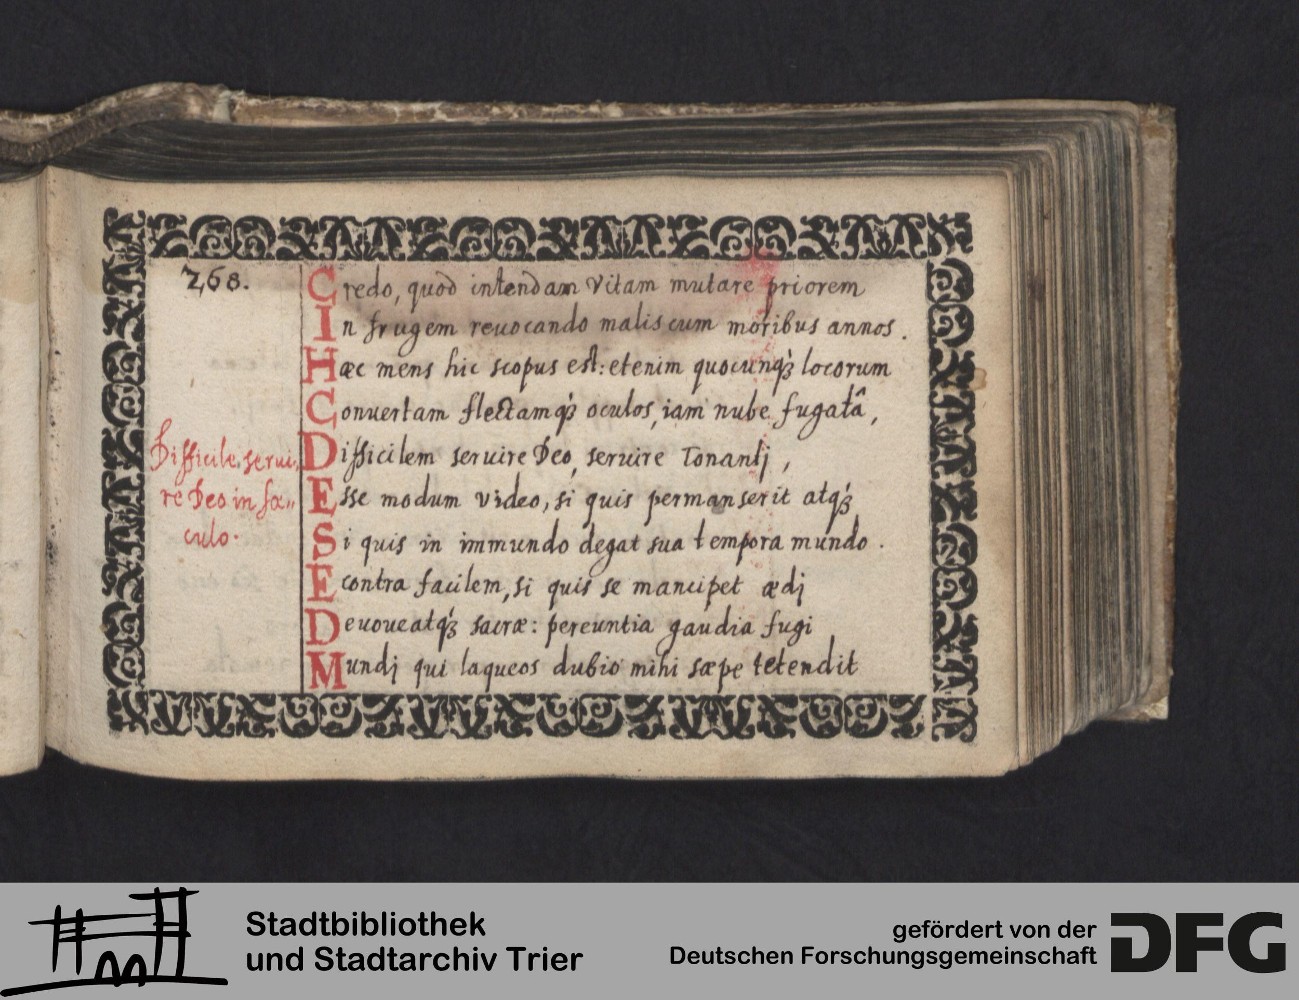 268.
Credo, quod intendam vitam mutare priorem
In frugem reuocando malis cum moribus annos.
Hæc mens hic scopus est: etenim quocunq᷒ locorum
Conuertam flectamq᷒ oculos, iam nube fugatâ,
Difficilem seruire Deo, seruire Tonantj,
Esse modum video, si quis permanserit atq᷒
Si quis in immundo degat sua tempora mundo.
E contra facilem, si quis se mancipet ædj
Deuoueatq᷒ sacræ: pereuntia gaudia fugi
Mundj qui laqueos dubio mihi sæpe tetendit
Difficile serui,,
re Deo in sæ,,
culo.
Stadtbibliothek
und Stadtarchiv Trier
gefördert von der
Deutschen Forschungsgemeinschaft
DFG